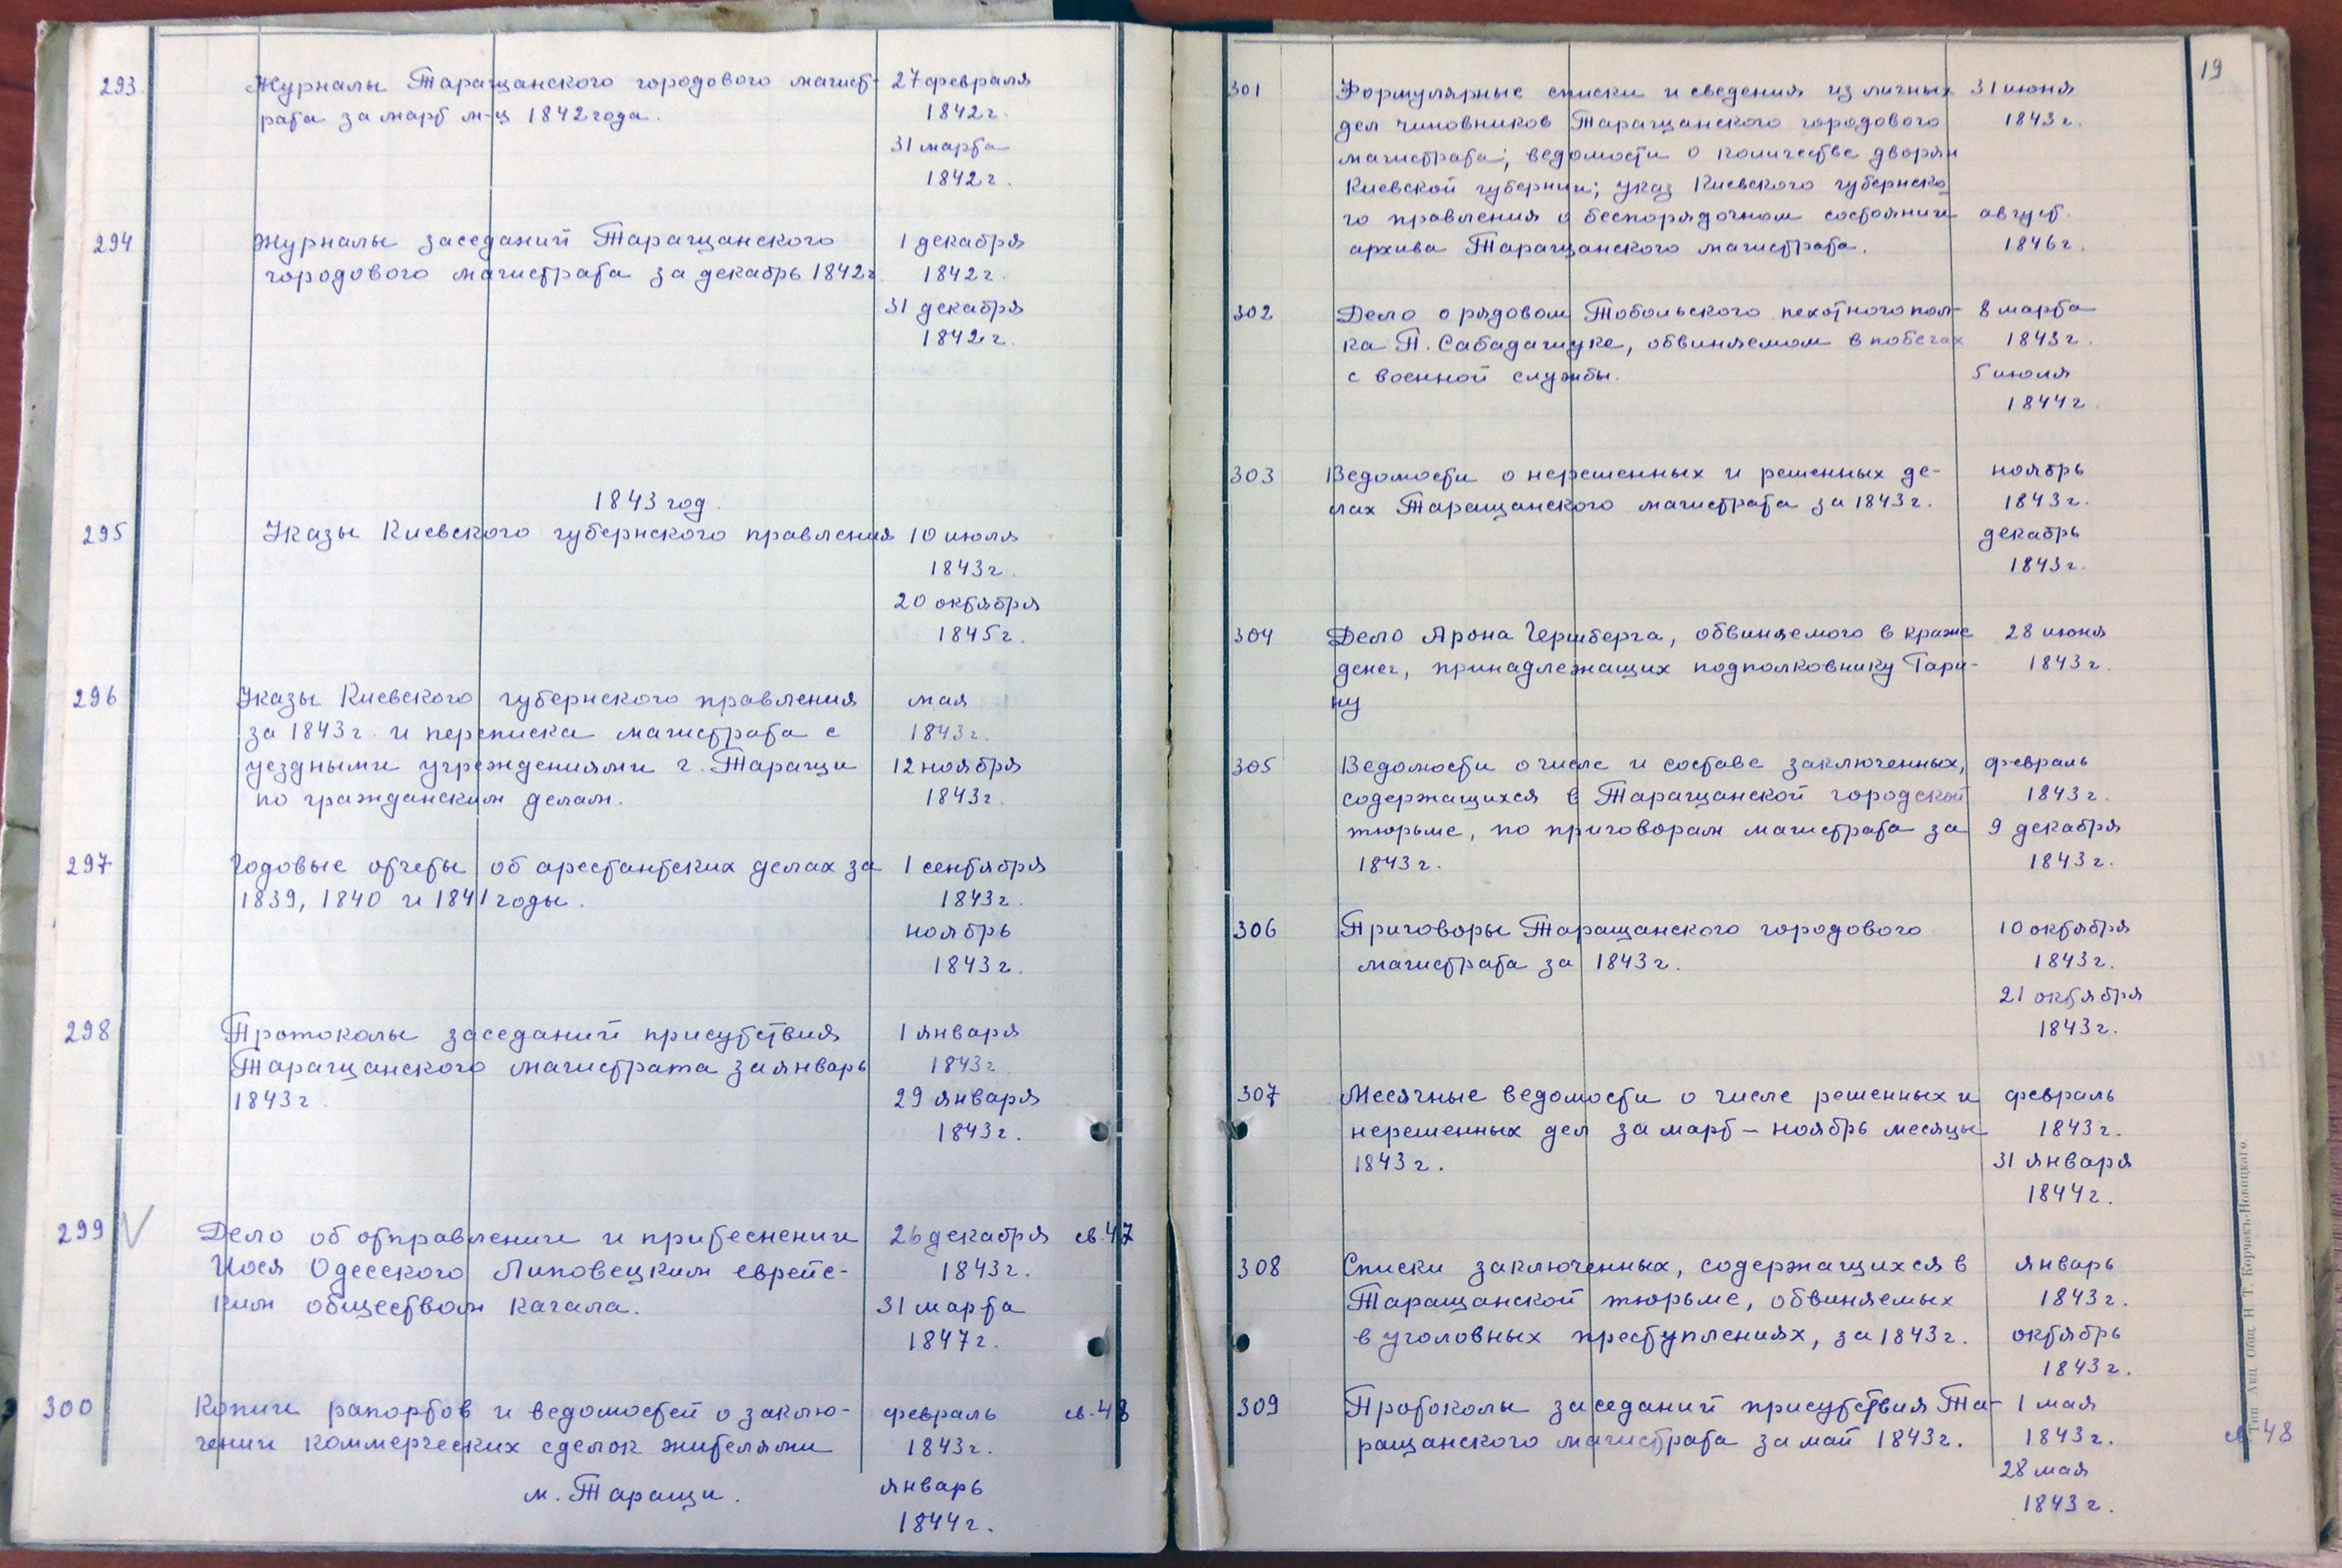 293 Журналы Таращанского городового магист- 27 февраля
рата за март м-ц 1842 года. 1842 г.
31 марта
1842 г.
294 Журналы заседаний Таращанского 1 декабря
городового магистрата за декабрь 1842 г. 1842 г.
31 декабря
1842 г.
1843 год.
295 Указы Киевского губернского правления 10 июля
1843 г.
20 октября
1845 г.
296 Указы Киевского губернского правления мая
за 1843 г. и переписка магистрата с 1843 г.
уездными учреждениями г. Таращи 12 ноября
по гражданским делам. 1843 г.
297 Годовые отчеты об арестантских делах за 1 сентября
1839, 1840 и 1841 годы. 1843 г.
ноябрь
1843 г.
298 Протоколы заседаний присутствия 1 января
Таращанского магистрата за январь 1843 г
1843 г. 29 января
1843 г.
299 Дело об отправлении и притеснении 26 декабря св. 47
Иося Одесского Липовецким еврейс- 1843 г.
ким обществом кагала. 31 марта
1847 г.
300 Копии рапортов и ведомостей о заклю- февраль св. 48
чении коммерческих сделок жителями 1843 г.
м. Таращи. январь
1844 г.
19
301 Формулярные списки и сведения из личных 31 июня
дел чиновников Таращанского городового 1843 г.
магистрата; ведомости о количестве дворян
Киевской губернии; указ Киевского губернско
го правления о беспорядочном состоянии август.
архива Таращанского магистрата. 1846 г.
302 Дело о рядовом Тобольского пехотного пол- 8 марта
ка П. Сабадащуке, обвиняемом в побегах 1843 г.
с военной службы. 5 июля
1844 г.
303 Ведомости о нерешенных и решенных де- ноябрь
лах Таращанского магистрата за 1843 г. 1843 г.
декабрь
1843 г.
304 Дело Арона Гершберга, обвиняемого в краже 28 июня
денег, принадлежащих подполковнику Гари- 1843 г.
ну
305 Ведомости о числе и составе заключенных, февраль
содержащихся в Таращанской городской 1843 г.
тюрьме, по приговорам магистрата за 9 декабря
1843 г. 1843 г.
306 Приговоры Таращанского городового 10 октября
магистрата за 1843 г. 1843 г.
21 октября
1843 г.
307 Месячные ведомости о числе решенных и февраль
нерешенных дел за март – ноябрь месяцы 1843 г.
1843 г. 31 января
1844 г.
308 Списки заключенных, содержащихся в январь
Таращанской тюрьме, обвиняемых 1843 г.
в уголовных преступлениях, за 1843 г. октябрь
1843 г.
309 Протоколы заседаний присутствия Та- 1 мая
ращанского магистрата за май 1843 г. 1843 г. св. 48
28 мая
1843 г.
Тип. Акц. Общ. Н. Т. Корчакъ-Новицкаго.